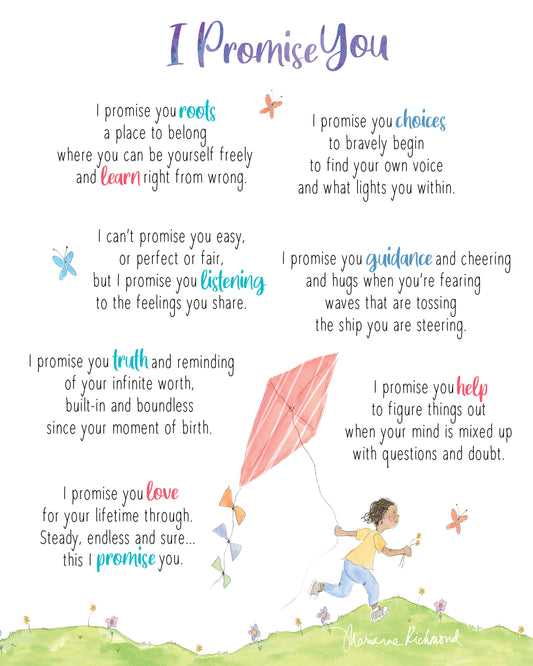 I Promise You
I promise you roots
a place to belong
where you can be yourself freely
and learn right from wrong.
I promise you choices
to bravely begin
to find your own voice
and what lights you within.
I can't promise you easy,
or perfect or fair,
but I promise you listening
to the feelings you share.
I promise you guidance and cheering
and hugs when you're fearing
waves that are tossing
the ship you are steering.
I promise you truth and reminding
of your infinite worth,
built-in and boundless
since your moment of birth.
I promise you help
to figure things out
when your mind is mixed up
with questions and doubt.
I promise you love
for your lifetime through.
Steady, endless and sure...
this I promise you.
Marianne Richmond